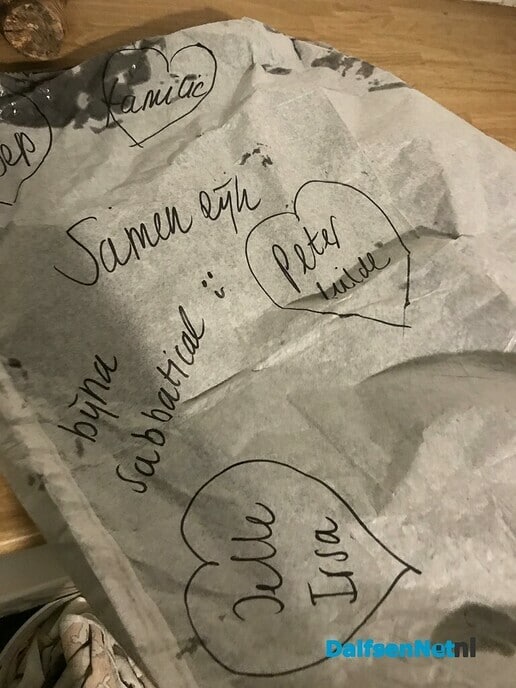 familie
Samen zijn
Peter
bijna
sabbatical :)
Jelle
Irsa
DalfsenNet.nl